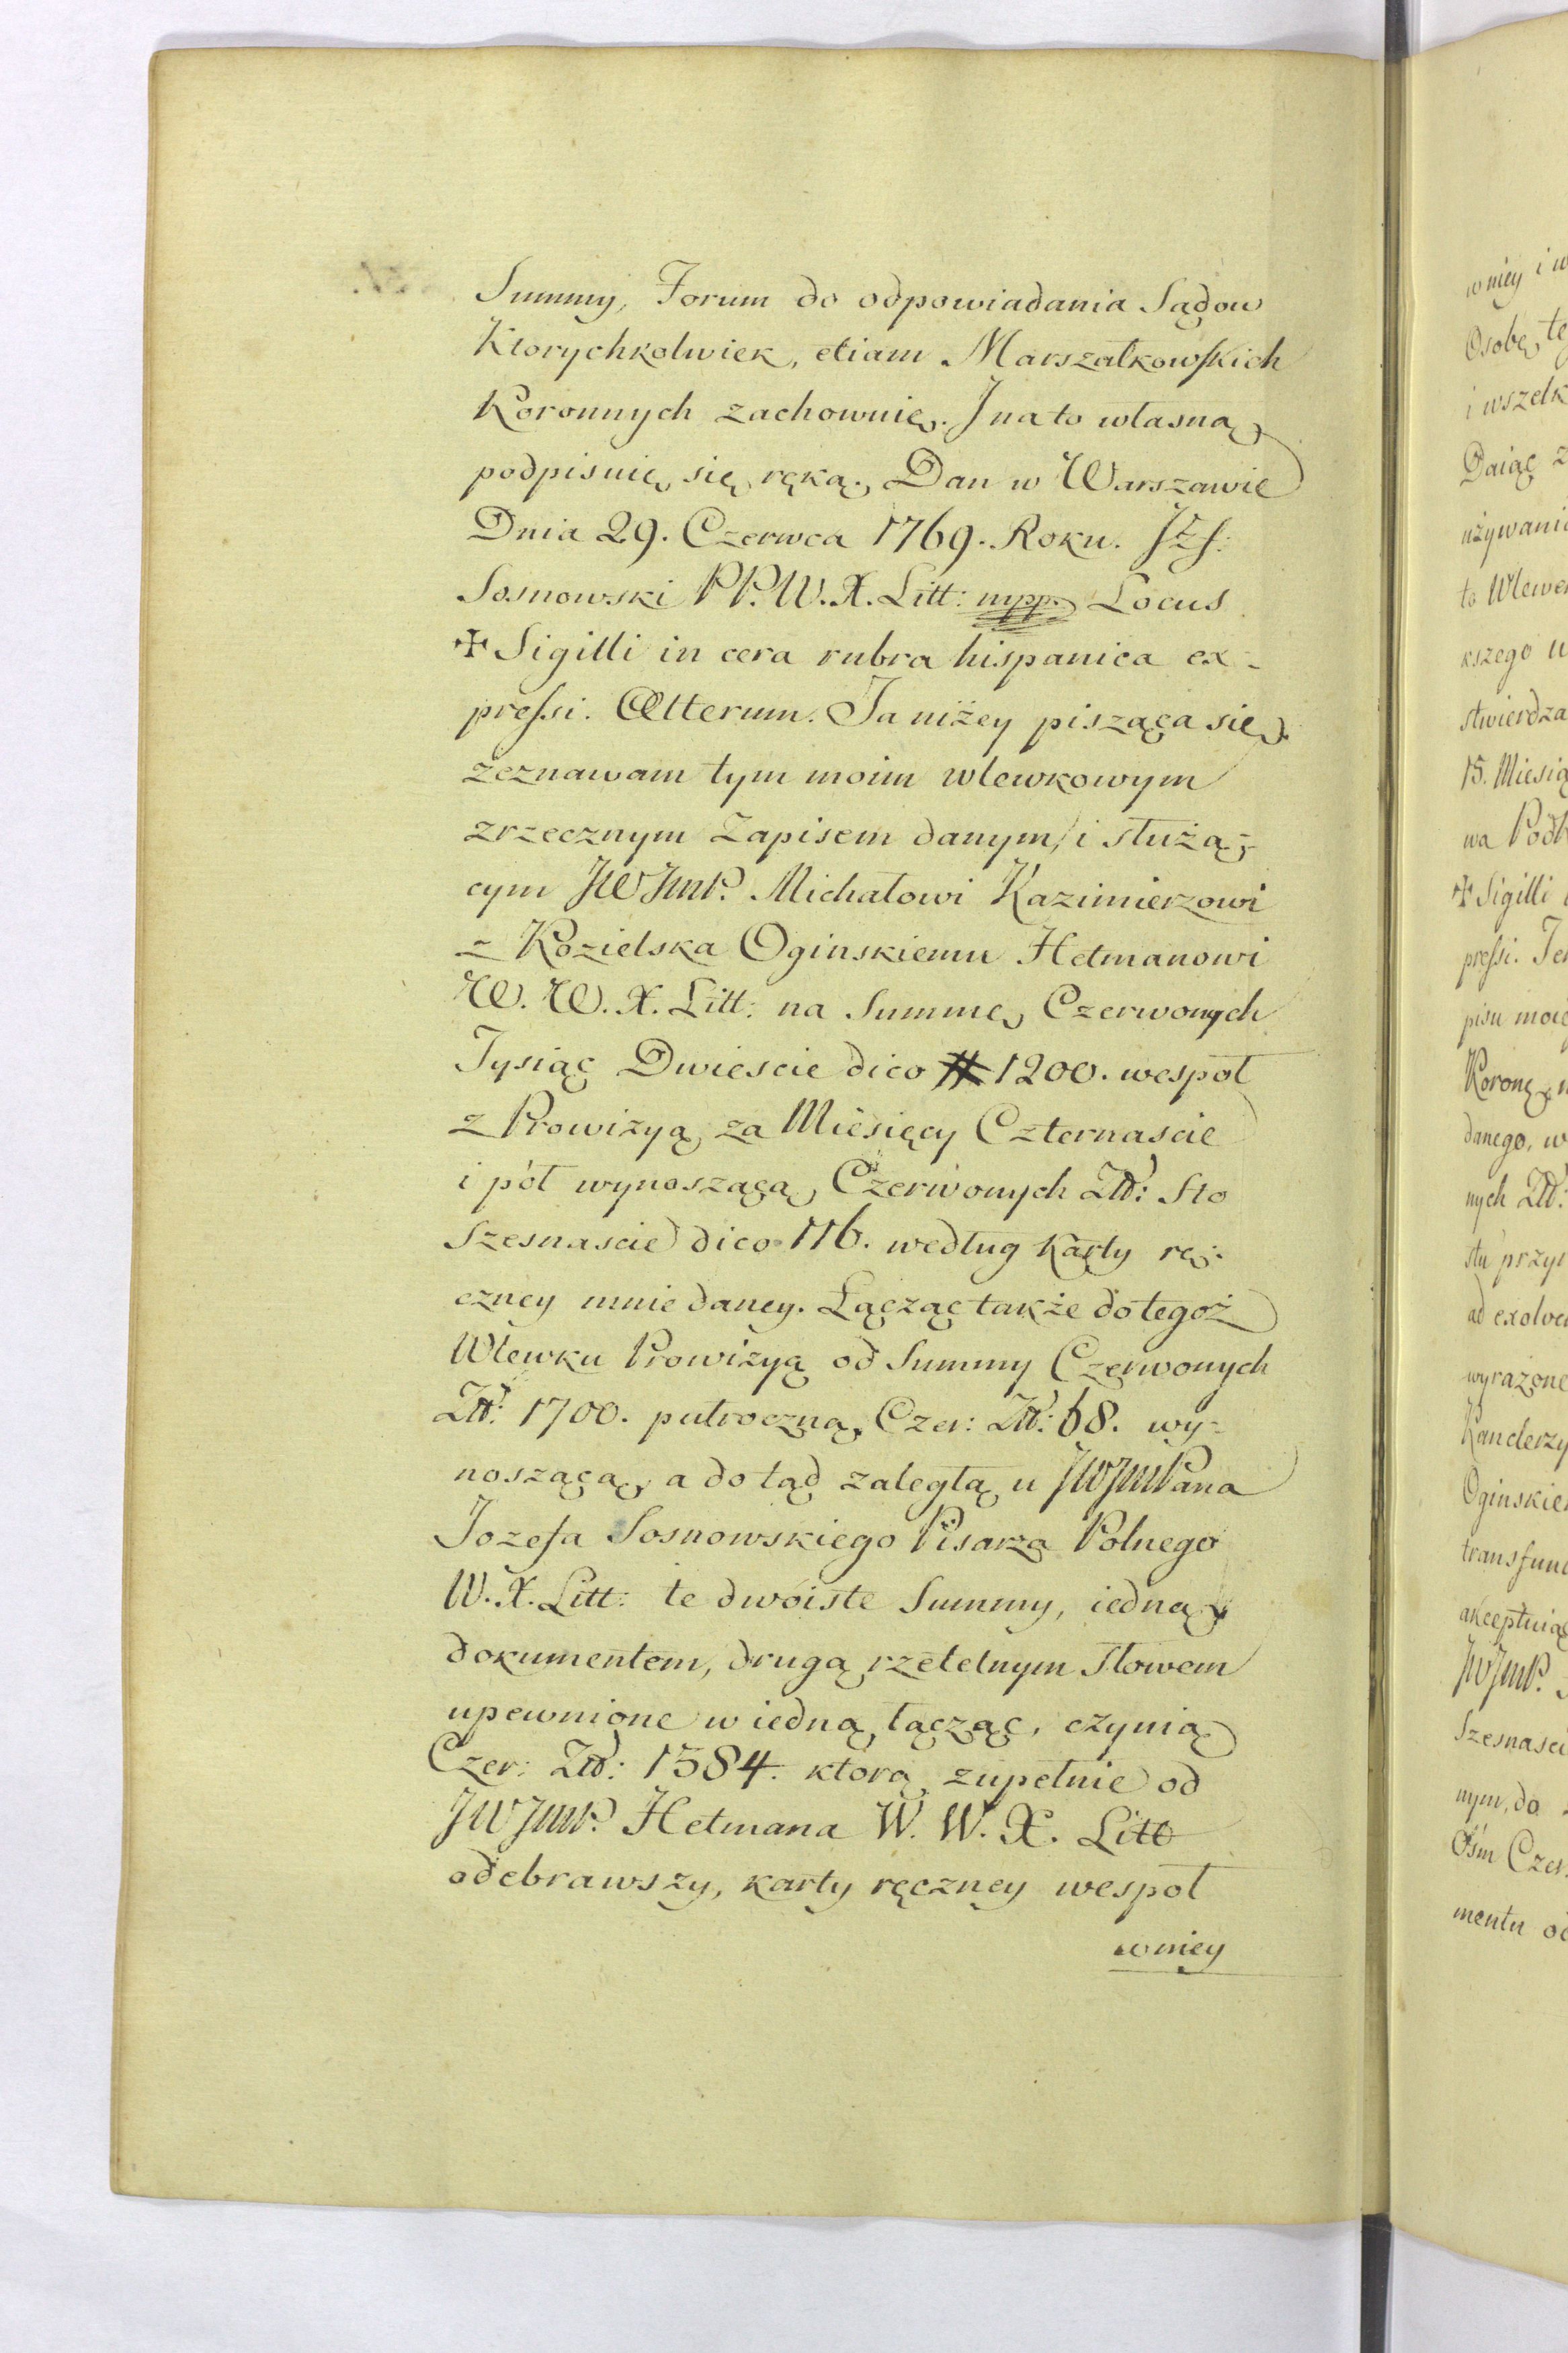 Summy, Forum do odpowiadania Sądow
Ktorychkolwiek, etiam Marszałkowskich
Koronnych zachowuię. J na to własną
podpisuię się ręką. Dan w Warszawie
Dnia 29. Czerwca 1769. Roku. Jzf:
Sosnowski P.P.W.X. Litt: mpp. Locus
✠ Sigilli in cera rubra hispanica ex-
pressi. Alterum. Ja niżey pisząca się
zeznawam tym moim wlewkowym
zrzecznym Zapisem danym, i służą-
cym JWJmP. Michałowi Kazimierzowi
z Kozielska Oginskiemu Hetmanowi
W. W. X. Litt: na Summę Czerwonych
Tysiąc Dwiescie dico # 1200. wespoł
z Prowizyą za Miesięcy Czternascie
i pół wynoszącą, Czerwonych Złł: Sto
Szesnascie dico 116. według Karty rę-
czney mnie daney. Łącząc także do tegoż
Wlewku Prowizyą od Summy Czerwonych
Złł: 1700. pułroczną, Czer: Złł: 68. wy-
noszącą, a do tąd zaległą u JWJmPana
Jozefa Sosnowskiego Pisarza Polnego
W.X. Litt: te dwoiste Summy, iedną
dokumentem, drugą rzetelnym Słowem
upewnione w iedną łącząc, czynią
Czer: Złł: 1384. ktorą zupełnie od
JWJmP. Hetmana W. W. X. Litt
odebrawszy, karty ręczney wespoł
w niey
w niey i w
Osobę te
i wszelk
Daiąc z
używani
to Wlewe
kszego u
stwierdza
15. Miesią
wa Podb
✠ Sigilli
pressi. Te
pisu moie
Koronę
danego, w
nych Złł:
stu przy
ad exolve
wyrażone
Kanclerzy
Oginskie
transfun
akceptuią
JWJmP.
Szesnasci
nym, do
Ośm Czer
mentu od